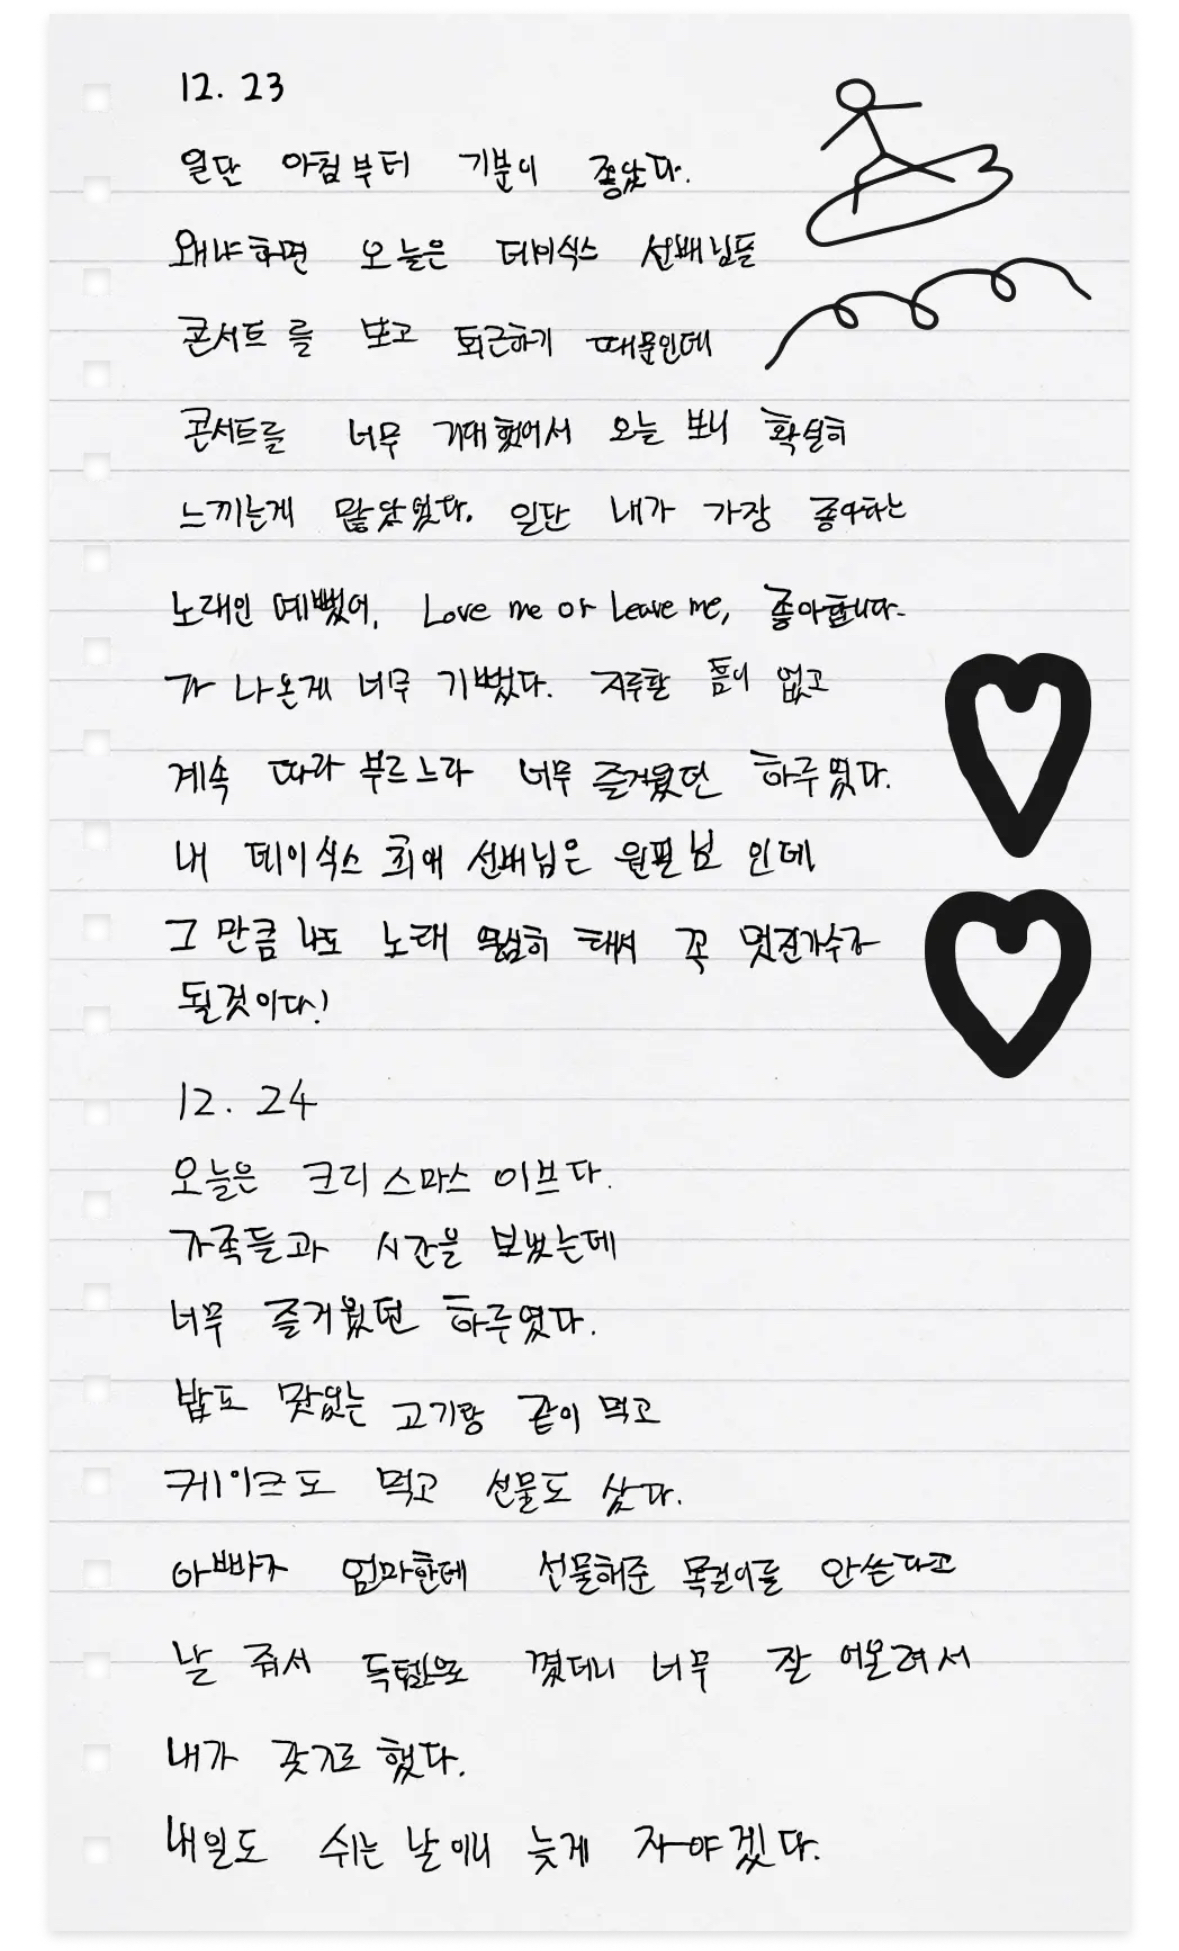 12. 23
일단 아침부터 기분이 좋았다.
왜냐하면 오늘은 데이식스 선배님들
콘서트를 보고 퇴근하기 때문인데
콘서트를 너무 기대했어서 오늘 보니 확실히
느끼는게 많았었다. 일단 내가 가장 좋아하는
노래인 예뻤어, Love me or Leave me, 좋아합니다-
가 나온게 너무 기뻤다. 지루할 틈이 없고
계속 따라 부르느라 너무 즐거웠던 하루였다.
내 데이식스 최애 선배님은 원필님 인데
그 만큼 나도 노래 열심히 해서 꼭 멋진가수가
될것이다!
12. 24
오늘은 크리스마스 이브다.
가족들과 시간을 보냈는데
너무 즐거웠던 하루였다.
밥도 맛있는 고기랑 같이 먹고
케이크도 먹고 선물도 샀다.
아빠가 엄마한테 선물해준 목걸이를 안쓴다고
날 줘서 꼈더니 너무 잘 어울려서
내가 갖기로 했다.
내일도 쉬는 날이니 늦게 자야겠다.